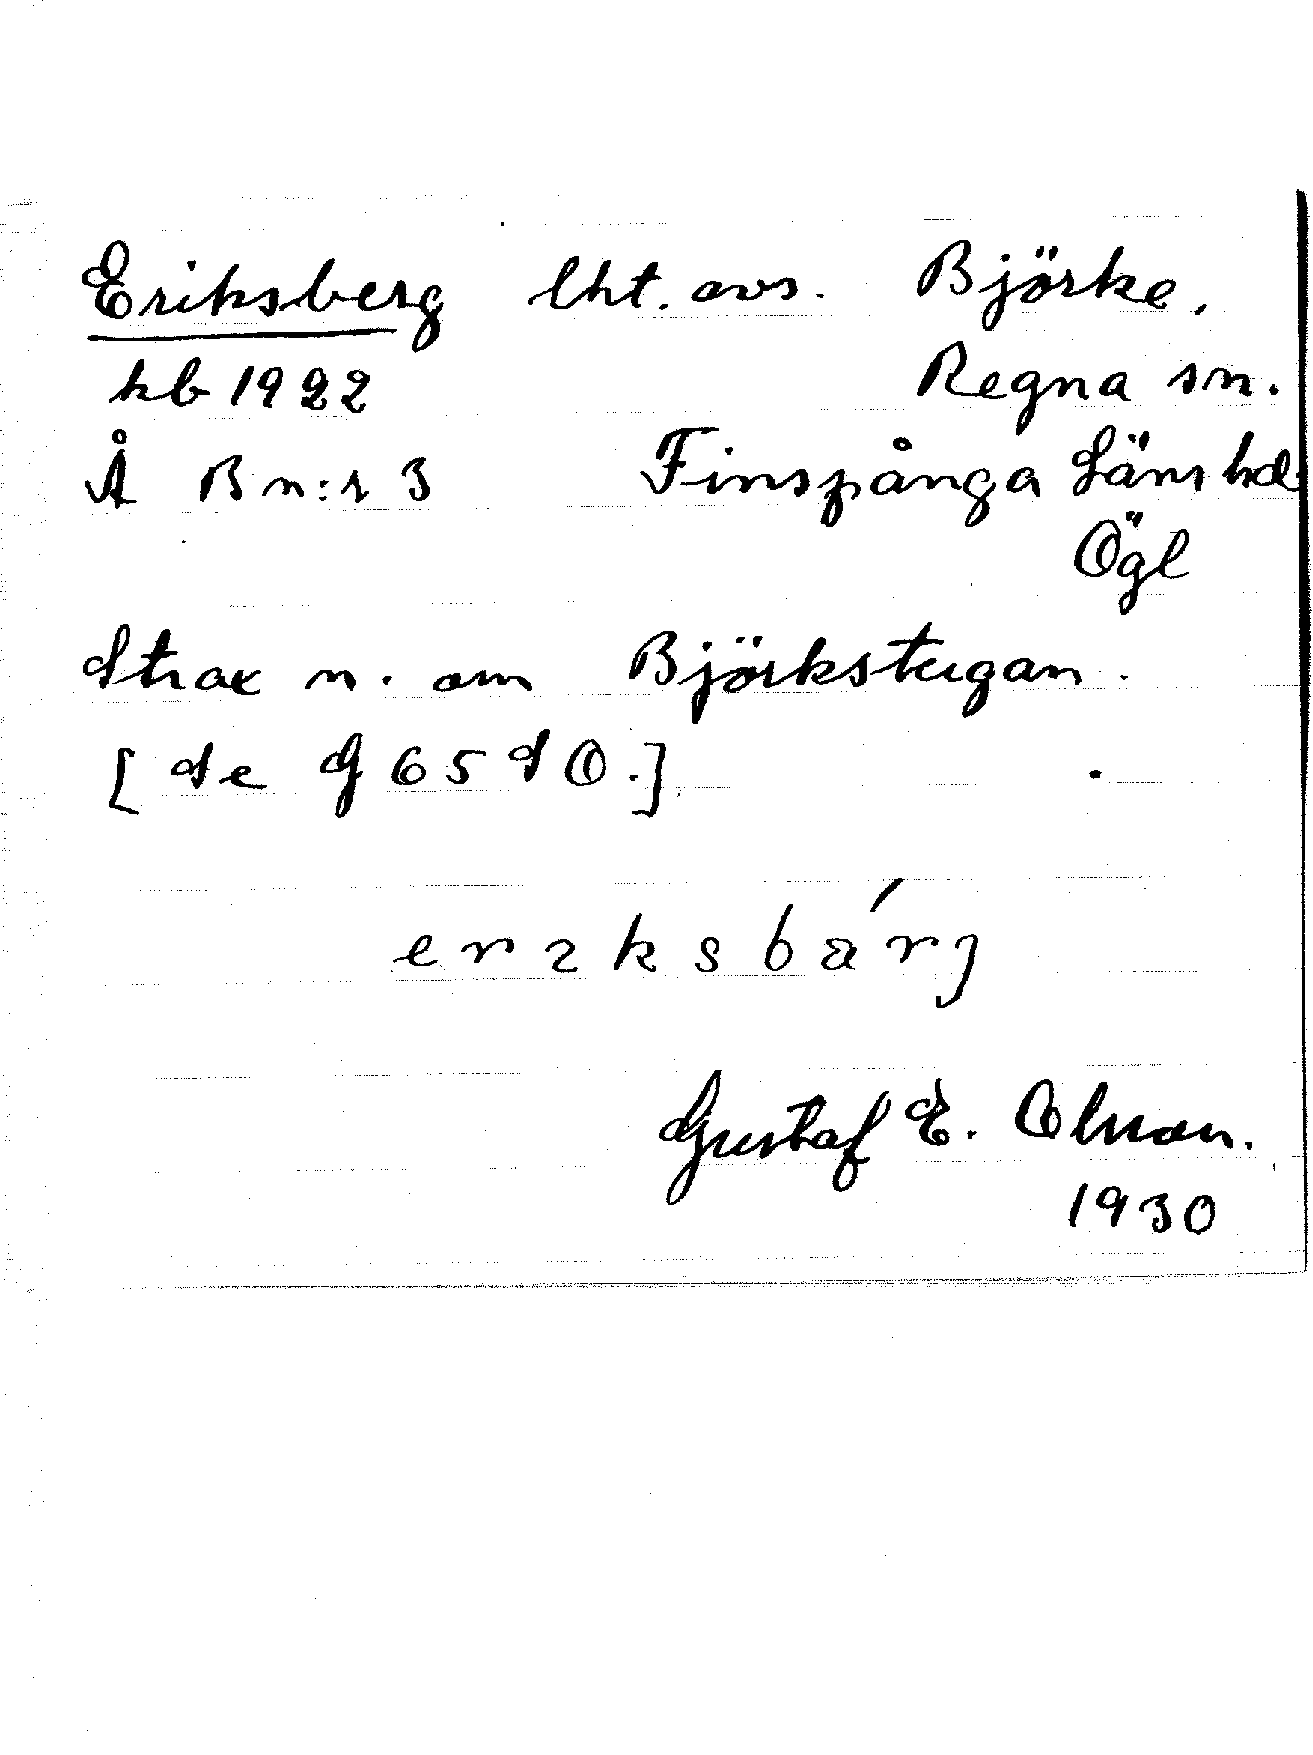 Eriksberg lht. avs. Björke,
kb 1922 Regna sn.
Å B n:r 3 Finspånga Läns hd
Ögl
Strax n. om Björkstugan.
[Se G 65 SO.]
erıksbárj
Gustaf E. Olsson.
1930